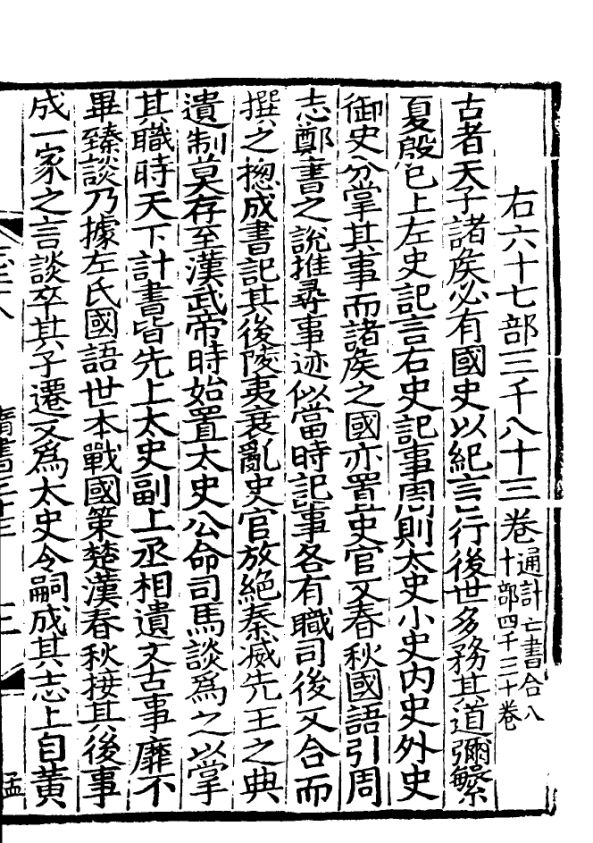 右六十七部三千八十三卷通計亡書合八
十部四千三十卷
古者天子諸矦必有國史以紀言行後世多務其道彌繁
夏殷已上左史記言右史記事周則太史小史内史外史
御史分掌其事而諸矦之國亦置史官又春秋國語引周
志鄭書之說推尋事迹似當時記事各有職司後又合而
撰之揔成書記其後陵夷衰亂史官放絕秦滅先王之典
遺制莫存至漢武帝時始置太史公命司馬談為之以掌
其職時天下計書皆先上太史副上丞相遺文古事靡不
畢臻談乃據左氏國語世本戰國策楚漢春秋接其後事
成一家之言談卒其子遷又為太史令嗣成其志上自黃